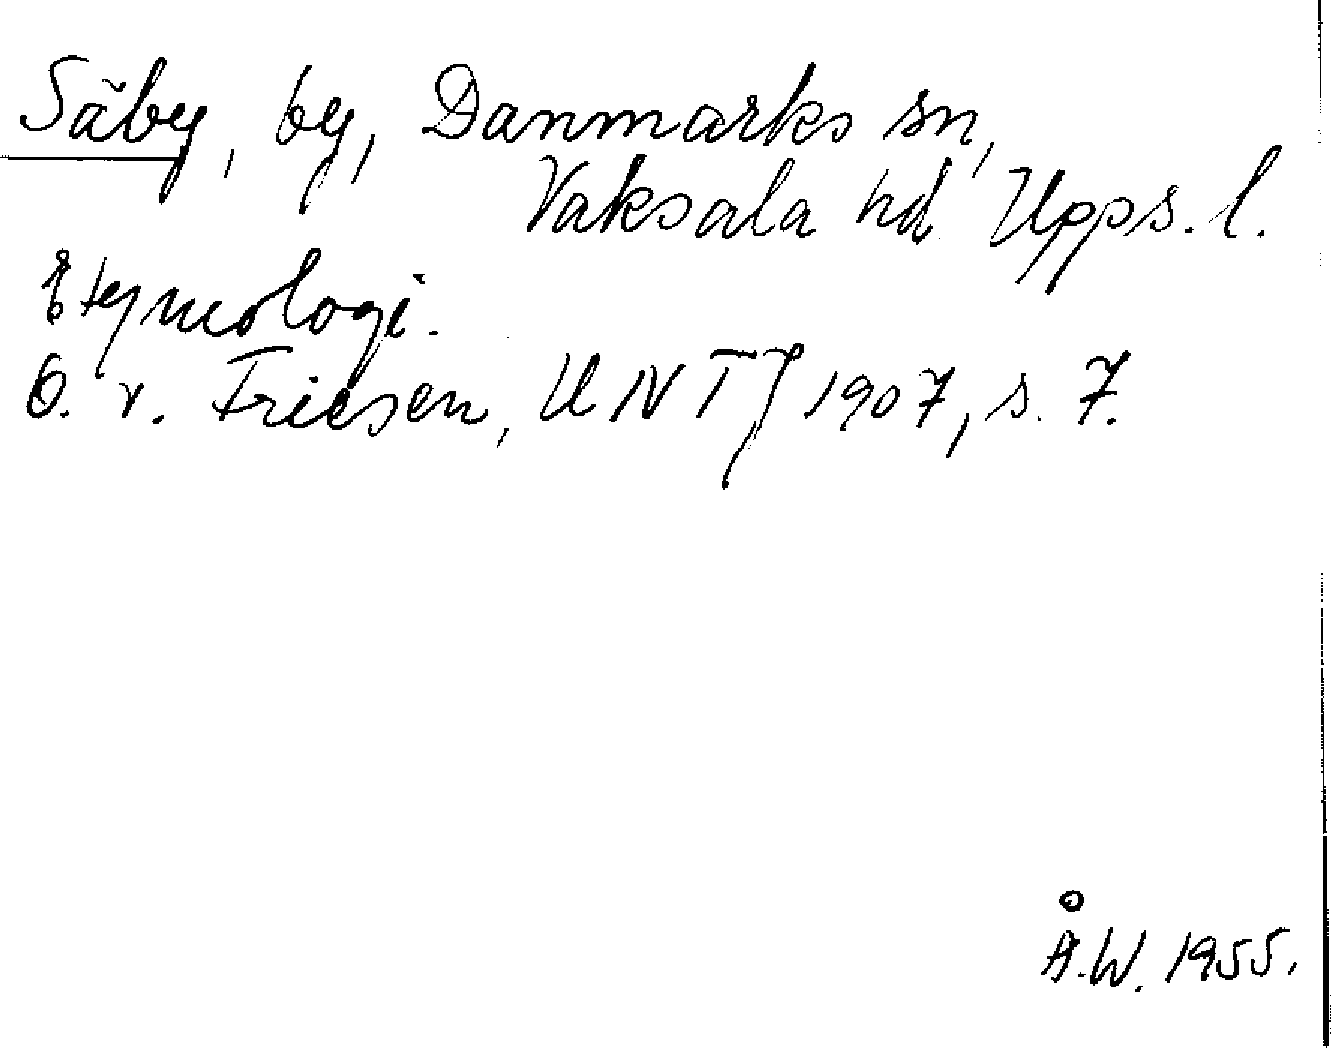 Säby, by, Danmarks sn,
Vaksala hd Upps. l.
Etymologi.
O. v. Friesen, UNT J 1907, s. 7.
Å.W. 1955.